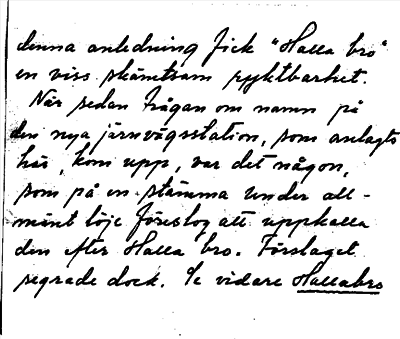 denna anledning fick "Halla bro"
en viss skämtsam ryktbarhet.
När sedan frågan om namn på
den nya järnvägsstation, som anlagts
här, kom upp, var det någon,
som på en stämma under all-
mänt löje föreslog att uppkalla
den efter Halla bro. Förslaget
segrade dock. Se vidare Hallabro